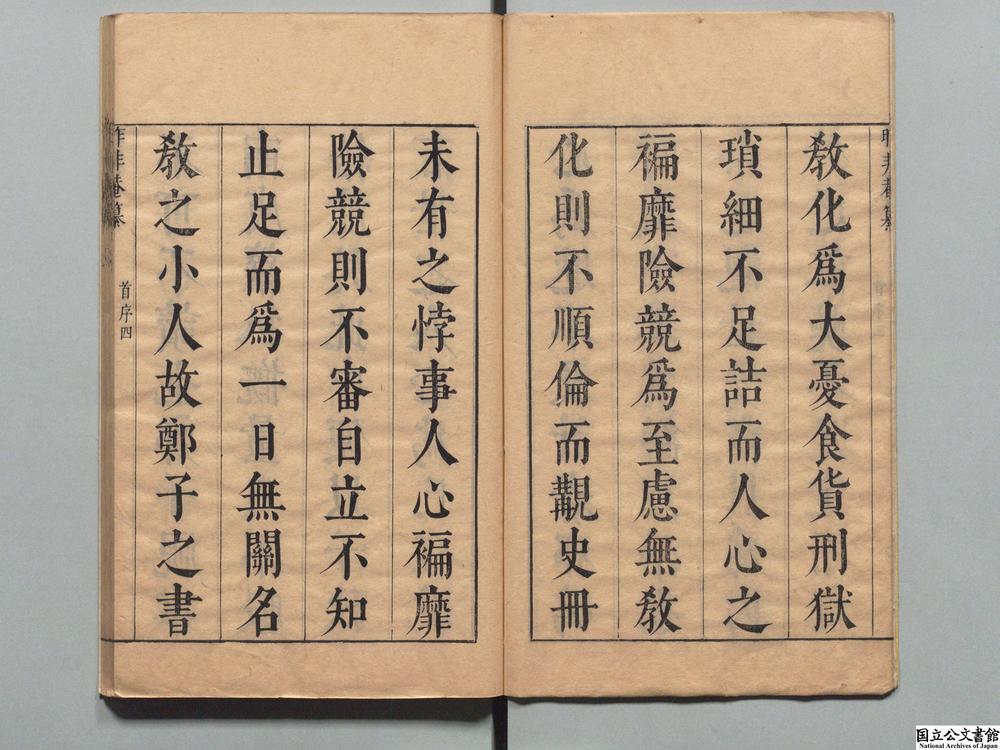 教化爲大憂食貨刑獄
瑣細不足詰而人心之
褊靡險競爲至慮無教
化則不順倫而覯史冊
未有之悖事人心褊靡
險競則不審自立不知
止足而爲一日無關名
教之小人故鄭子之書
昨非菴纂
首序四
国立公文書館
National Archives of Japan